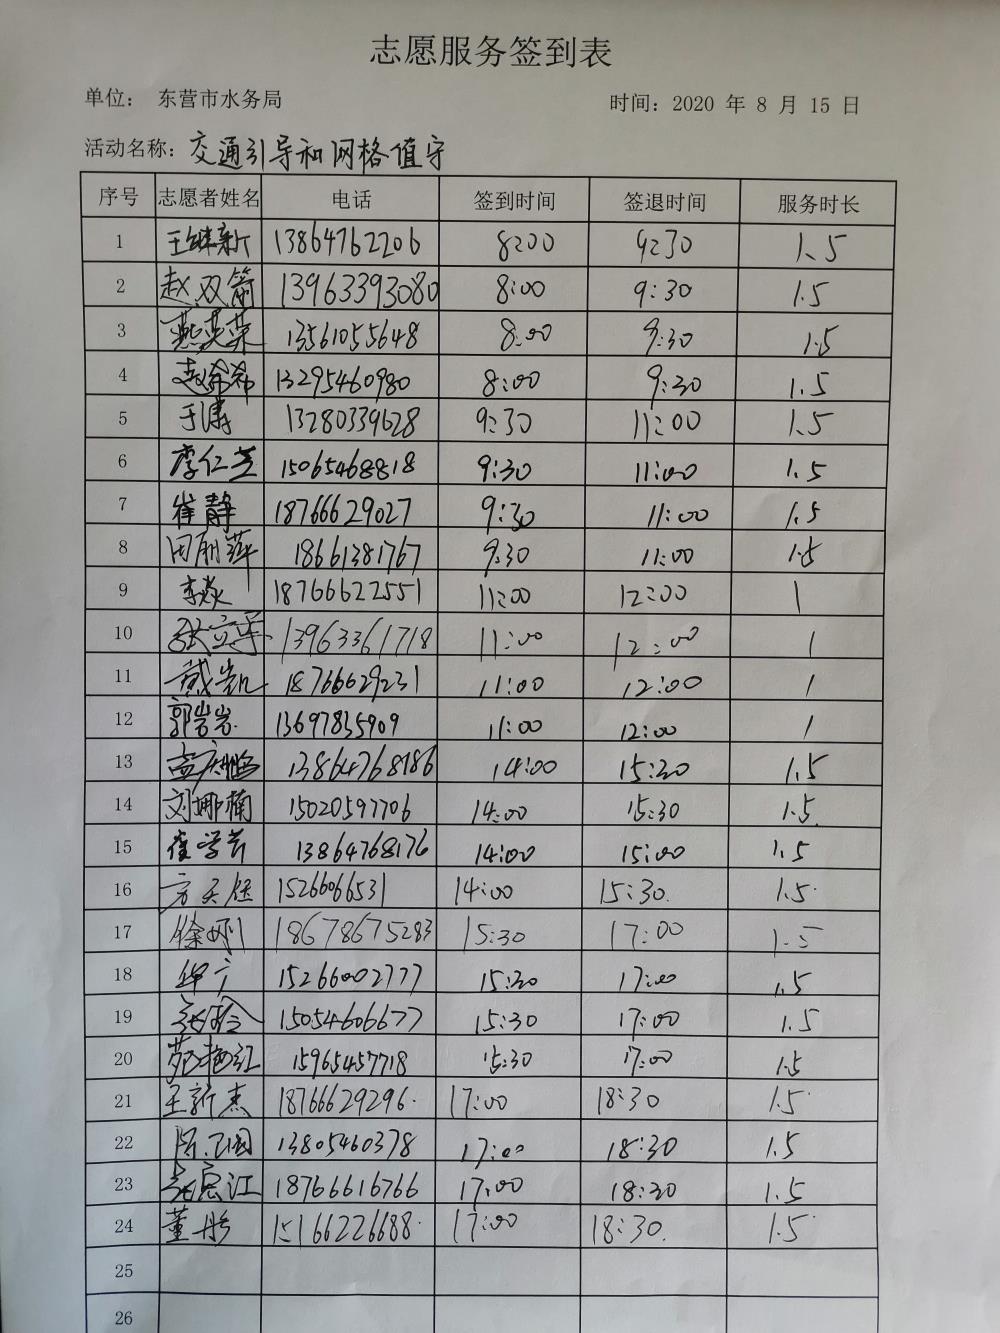 志愿服务签到表
单位： 东营市水务局 时间：2020 年 8 月 15 日
活动名称：交通引导和网格值守
序号 志愿者姓名 电话 签到时间 签退时间 服务时长
1 王继新 13864762206 8:00 9:30 1.5
2 赵双箭 13963393080 8:00 9:30 1.5
3 燕英菜 13561055648 8:00 9:30 1.5
4 赵希 13295460980 8:00 9:30 1.5
5 于涛 13280339628 9:30 11:00 1.5
6 李仁芝 15065468818 9:30 11:00 1.5
7 崔静 18766629027 9:30 11:00 1.5
8 田丽萍 18661381767 9:30 11:00 1.5
9 李焱 18766622551 11:00 12:00 1
10 张立 13963361718 11:00 12:00 1
11 戴凯 18766629231 11:00 12:00 1
12 郭岩岩 13697835909 11:00 12:00 1
13 孟庆鹏 13864768186 14:00 15:30 1.5
14 刘娜楠 15020597706 14:00 15:30 1.5
15 崔学芳 13864768176 14:00 15:00 1.5
16 方天健 15266066531 14:00 15:30 1.5
17 徐刚 18678675283 15:30 17:00 1.5
18 华广 15266002777 15:30 17:00 1.5
19 15054606677 15:30 17:00 1.5
20 苑艳红 15965457718 15:30 17:00 1.5
21 王新杰 18766629296 17:00 18:30 1.5
22 国 13805460378 17:00 18:30 1.5
23 江 18766616766 17:00 18:30 1.5
24 董彤 15166226688 17:00 18:30 1.5
25
26